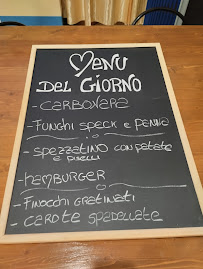 MENU
DEL GIORNO
- CARBONARA
- FUNGHI SPECK E PANNA
- SPEZZATINO CON PATATE
E PISELLI
- HAMBURGER
- FINOCCHI GRATINATI
- CAROTE SPADELLATE